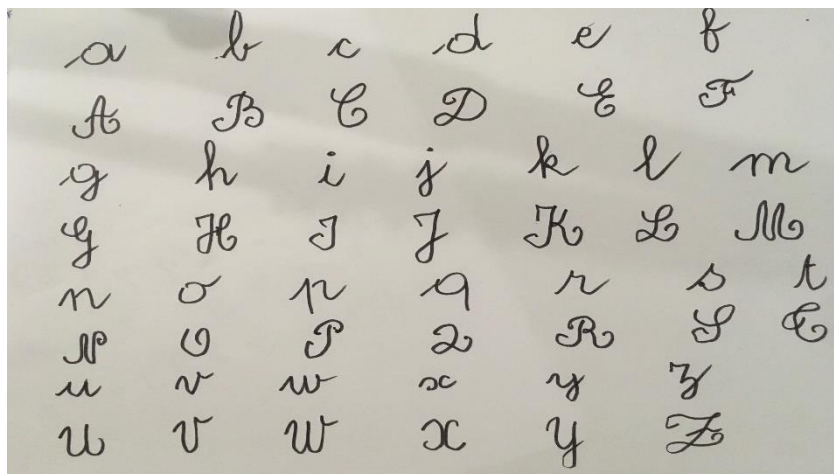 a b c d e f
A B C D E F
g h i j k l m
G H I J K L M
n o p q r s t
N O P Q R S T
u v w x y z
U V W X Y Z